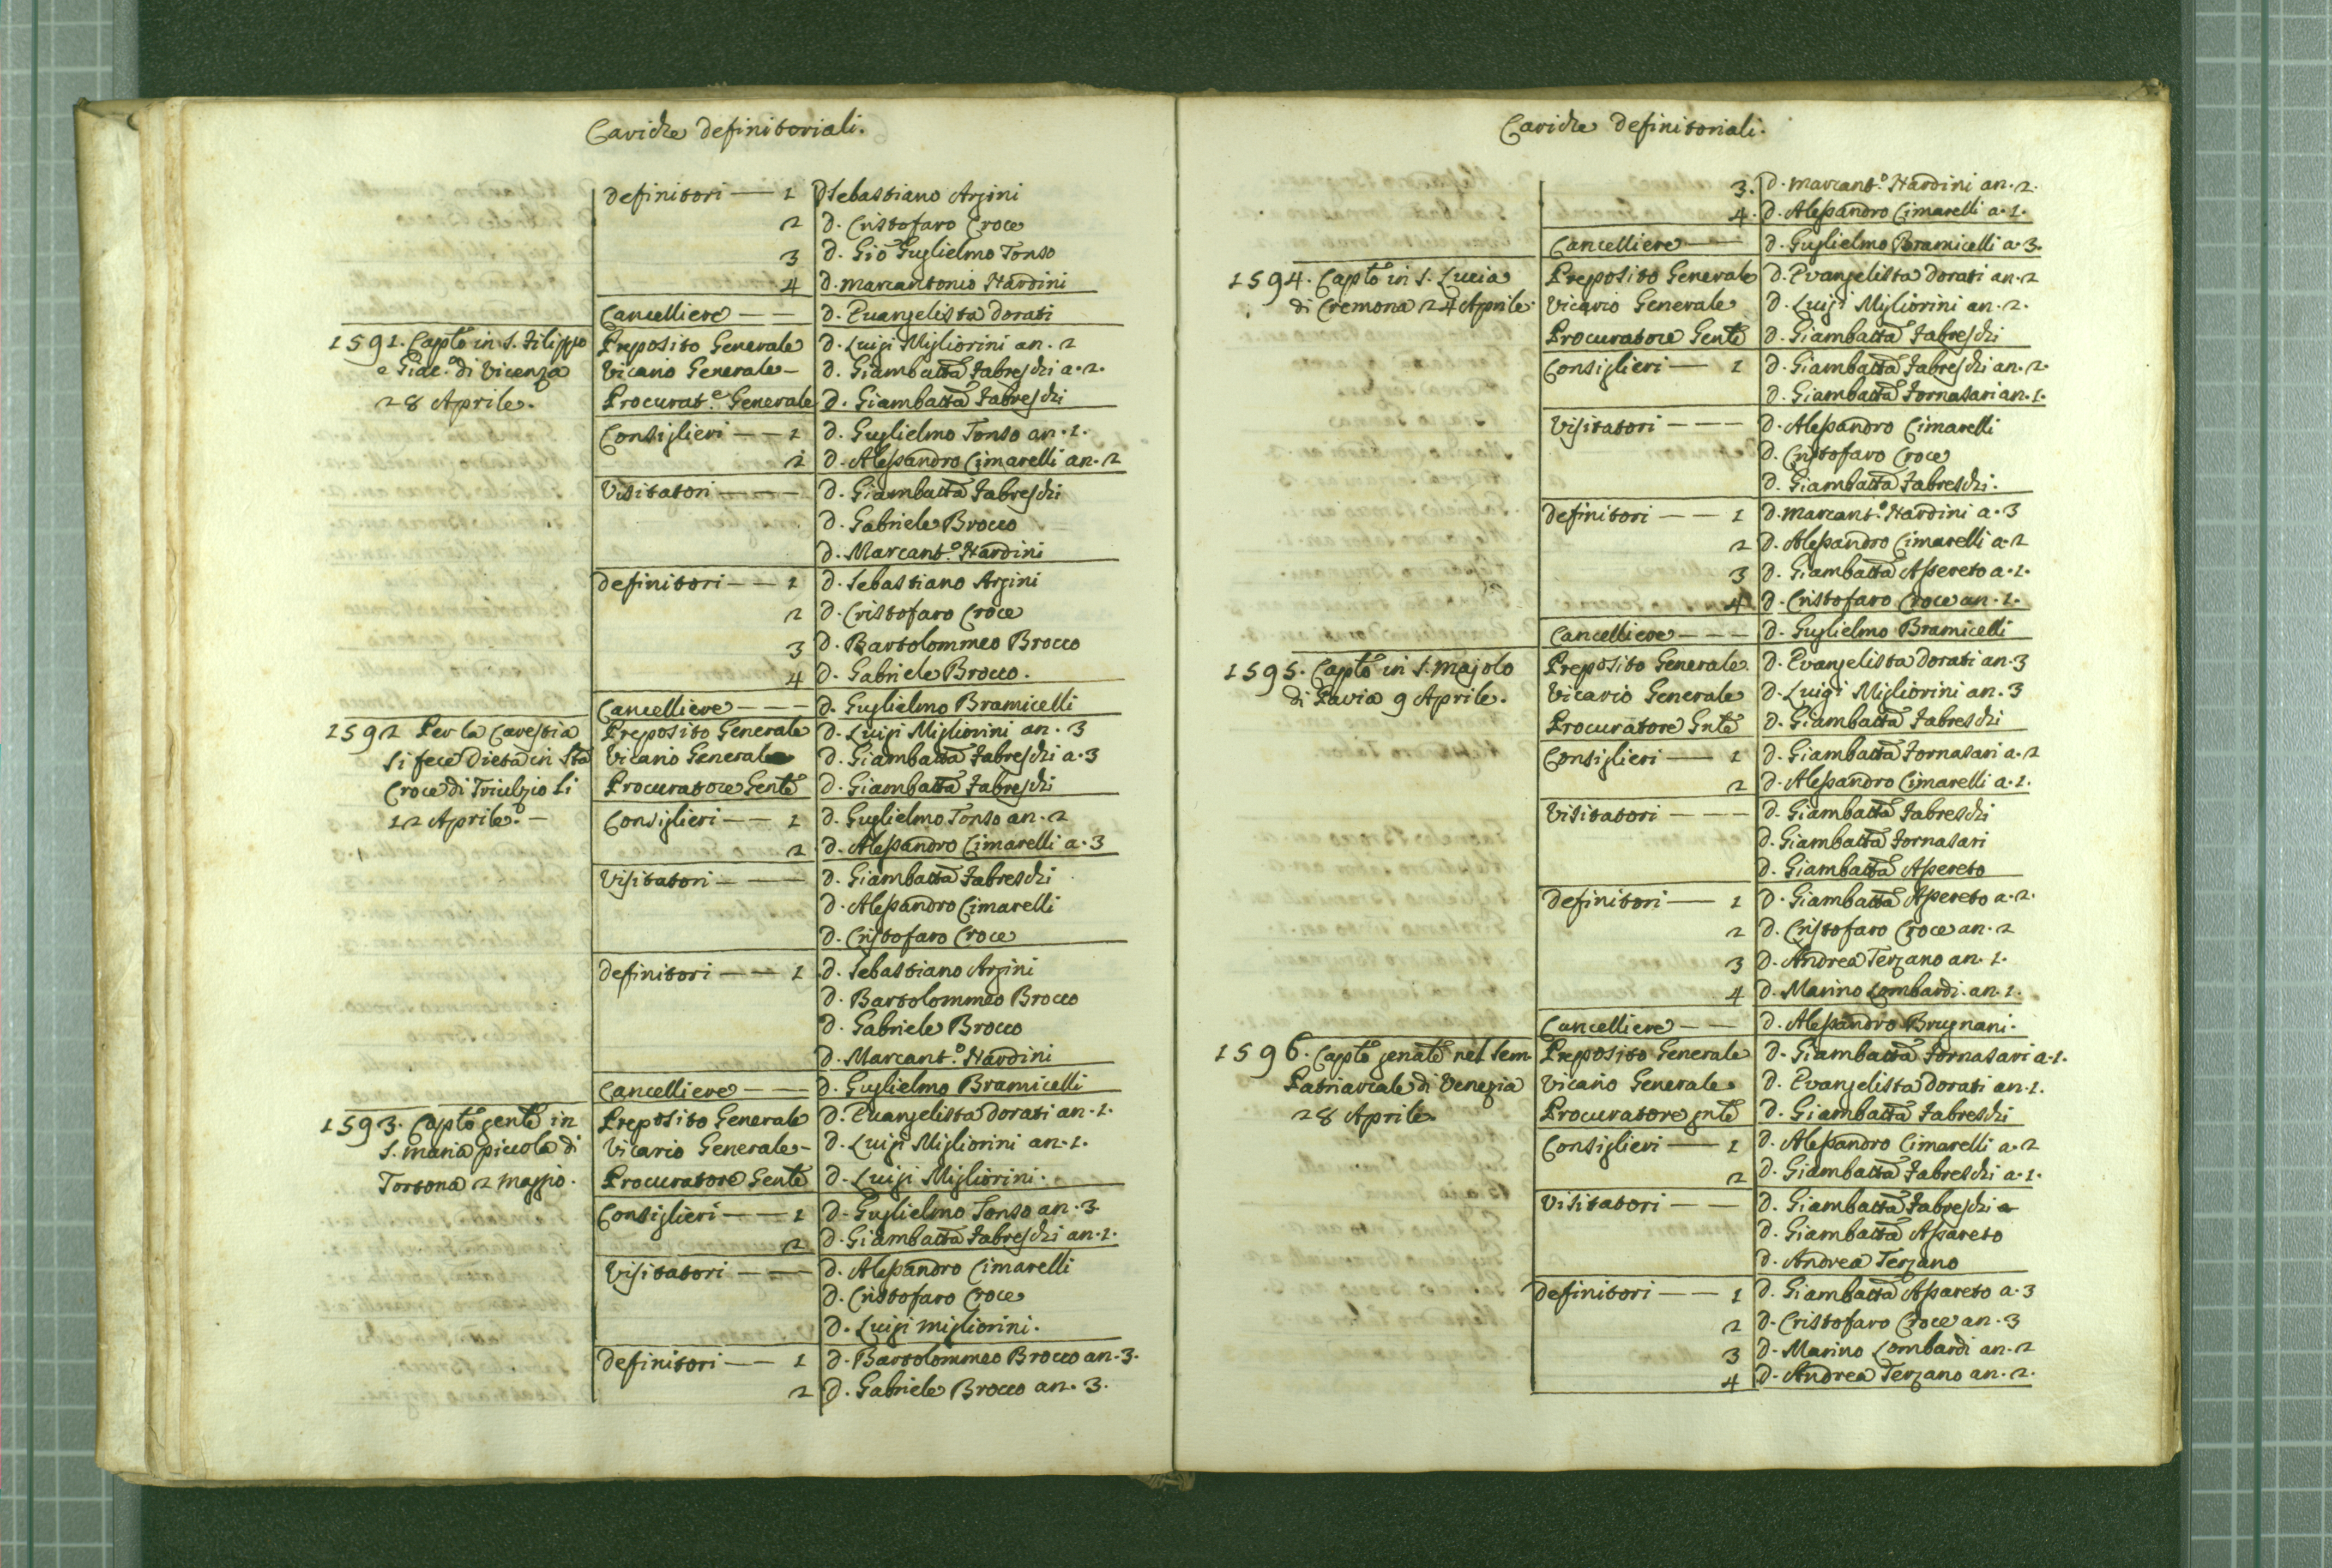 Cariche definitoriali.
definitori — 1 D Sebastiano Arzini
2 D. Cristofaro Croce
3 D. Gio Guglielmo Tonso
4 D. Marcantonio Nardini
Cancelliere — — D. Evangelista Dorati
1591. Capto in S. Filippo Preposito Generale D. Luigi Migliorini an. 2
e Giac.o di Vicenza Vicario Generale — D. Giambatta Fabreschi a. 2.
28 Aprile. Procurat.e Generale D. Giambatta Fabreschi
Consiglieri — — 1 D. Guglielmo Tonso an. 1.
2 D. Alessandro Cimarelli an. 2
Visitatori — — — D. Giambatta Fabreschi
D. Gabriele Brocco
D. Marcant.o Nardini
definitori — — 1 D. Sebastiano Arzini
2 D. Cristofaro Croce
3 D. Bartolommeo Brocco
4 D. Gabriele Brocco.
Cancelliere — — — D. Guglielmo Bramicelli
1592 Per la Carestia Preposito Generale D. Luigi Migliorini an. 3
si fece Dieta in Sta Vicario Generale D. Giambatta Fabreschi a. 3
Croce di Triulzio li Procuratore Genle D. Giambatta Fabreschi
12 Aprile. — Consiglieri — — 1 D. Guglielmo Tonso an. 2
2 D. Alessandro Cimarelli a. 3
Visitatori — — — D. Giambatta Fabreschi
D. Alessandro Cimarelli
D. Cristofaro Croce
definitori — — 1 D. Sebastiano Arzini
D. Bartolommeo Brocco
D. Gabriele Brocco
D. Marcant.o Nardini
Cancelliere — — — D. Guglielmo Bramicelli
1593. Capto genle in Preposito Generale D. Evangelista Dorati an. 1.
S. Maria piccola di Vicario Generale — D. Luigi Migliorini an. 1.
Tortona 2 Maggio. Procuratore Genle D. Luigi Migliorini.
Consiglieri — — 1 D. Guglielmo Tonso an. 3
2 D. Giambatta Fabreschi an. 1.
Visitatori — — D. Alessandro Cimarelli
D. Cristofaro Croce
D. Luigi Migliorini.
definitori — — 1 D. Bartolommeo Brocco an. 3.
2 D. Gabriele Brocco an. 3.
Cariche definitoriali.
3. D. Marcant.o Nardini an. 2.
4. D. Alessandro Cimarelli a. 1.
Cancelliere — — D. Guglielmo Bramicelli a. 3.
1594. Capto in S. Lucia Preposito Generale D. Evangelista Dorati an. 2
di Cremona 24 Aprile. Vicario Generale D. Luigi Migliorini an. 2.
Procuratore Genle D. Giambatta Fabreschi
Consiglieri — 1 D. Giambatta Fabreschi an. 2.
D. Giambatta Fornasari an. 1.
Visitatori — — — D. Alessandro Cimarelli
D. Cristofaro Croce
D. Giambatta Fabreschi.
definitori — — 1 D. Marcant.o Nardini a. 3
2 D. Alessandro Cimarelli a. 2
3 D. Giambatta Assereto a. 1.
4 D. Cristofaro Croce an. 1.
Cancelliere — — — D. Guglielmo Bramicelli
1595. Capto in S. Majolo Preposito Generale D. Evangelista Dorati an. 3
di Pavia 9 Aprile. Vicario Generale D. Luigi Migliorini an. 3
Procuratore Gnle D. Giambatta Fabreschi
Consiglieri — 1 D. Giambatta Fornasari a. 2
2 D. Alessandro Cimarelli a. 1.
Visitatori — — — D. Giambatta Fabreschi
D. Giambatta Fornasari
D. Giambatta Assereto
definitori — 1 D. Giambatta Assereto a. 2.
2 D. Cristofaro Croce an. 2
3 D. Andrea Terzano an. 1.
4 D. Marino Lombardi. an. 1.
Cancelliere — — D. Alessandro Brugnani.
1596. Capto genale nel Sem. Preposito Generale D. Giambatta Fornasari a. 1.
Patriarcale di Venezia Vicario Generale D. Evangelista Dorati an. 1.
28 Aprile Procuratore gnle D. Giambatta Fabreschi
Consiglieri — 1 D. Alessandro Cimarelli a. 2
2 D. Giambatta Fabreschi a. 1.
Visitatori — — D. Giambatta Fabreschi
D. Giambatta Assareto
D. Andrea Terzano
definitori — — 1 D. Giambatta Assareto a. 3
2 D. Cristofaro Croce an. 3
3 D. Marino Lombardi an. 2
4 D. Andrea Terzano an. 2.